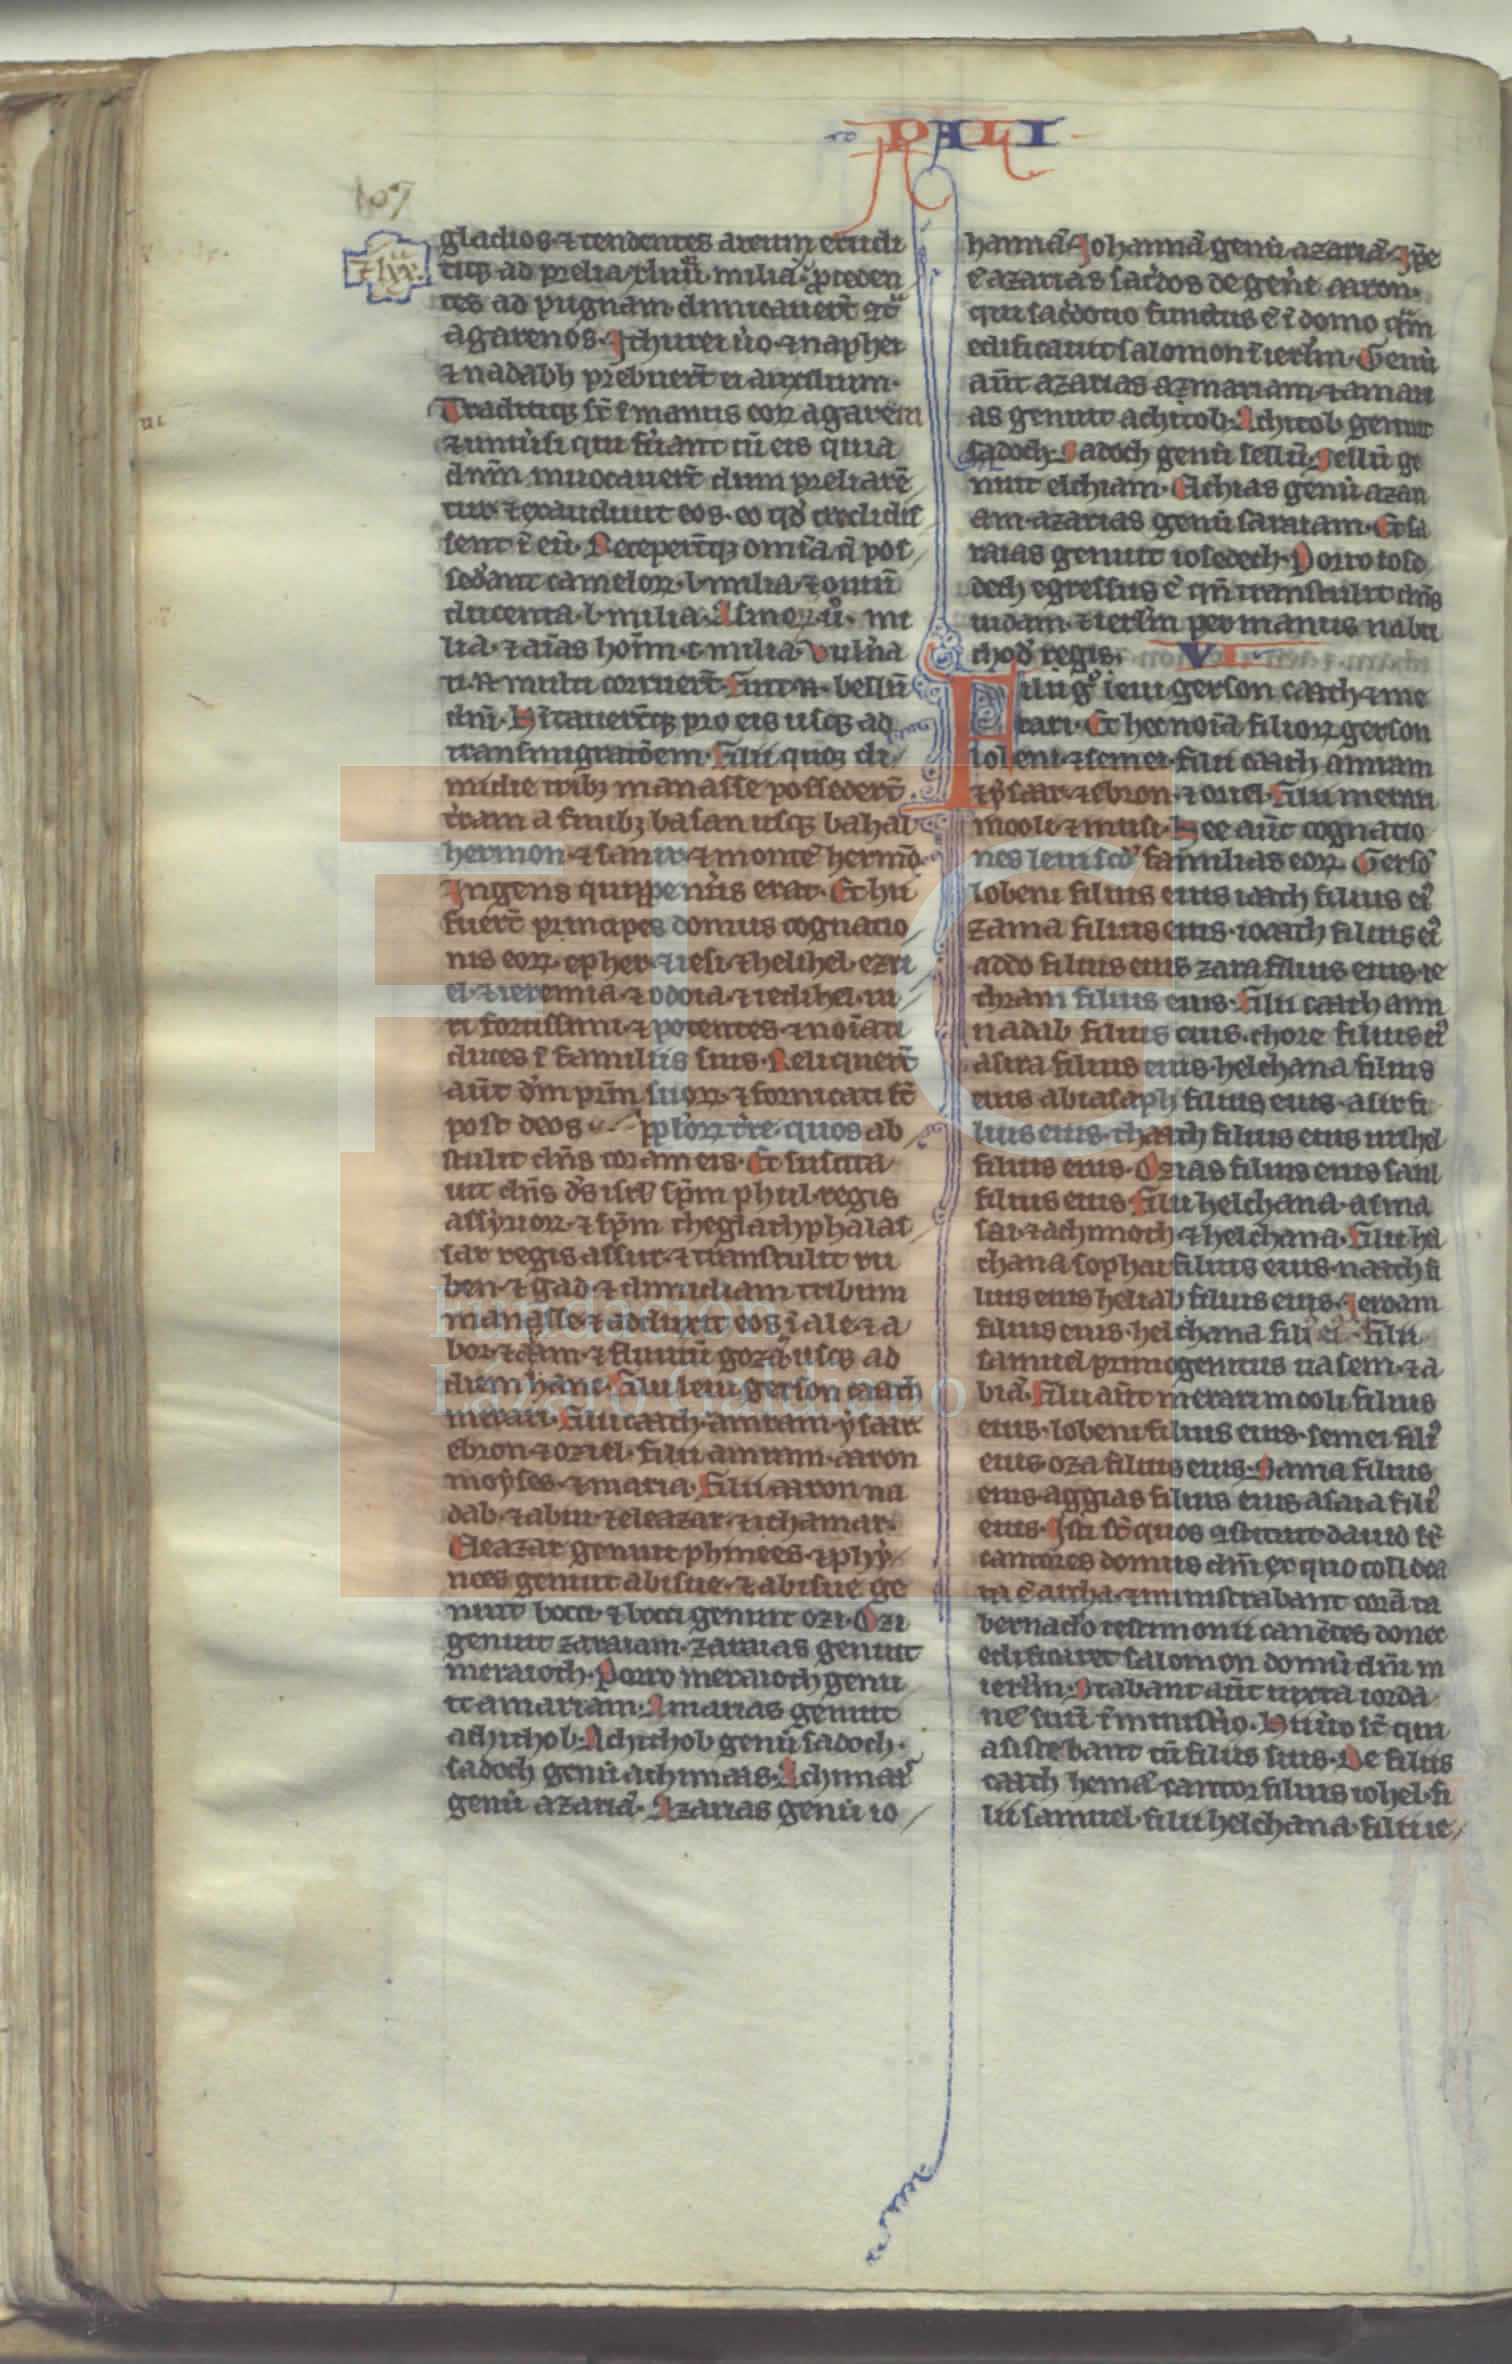 PALI
107
gladios ⁊ tendentes arcum erudi
tiqꝫ ad prelia xliiii milia ꝓceden
tes ad pugnam dimicauerт̃ 9t᷑
agarenos. Ithurei u̇o ⁊ naphei
⁊ nadabh prebuerт̃ ei auxilium.
Traditiqꝫ sт̃ ĩ manus eoꝝ agareni
⁊ uniũsi qui fũant cũ eis quia
dnm̃ inuocauerт̃ dum preliarẽ
tur. ⁊ exaudiuit eos. eo qď credidis
sent ĩ eũ. Ceperт̃qꝫ om̃ia ã̇ pos
sed̓ant cameloꝝ. l. milia. ⁊ ouiũ
ducenta. l. milia. Asinoꝝ. ii. mi
lia. ⁊ aĩas hoĩm. c. milia. Vuln̓a
ti. n̄. multi corruerт̃. fuit. n̄. bellũ
dnĩ. Hĩtauerт̃qꝫ pro eis usqꝫ ad
transmigratõem. filii quoqꝫ di
midie tribꝫ manasse possederт̃
t̓ram a finibꝫ basan usqꝫ bahal
hermon. ⁊ sanir. ⁊ monтẽ hermõ.
Ingens quippe nũs erat. Et hii
fuerт̃ principes domus cognatio
nis eoꝝ. epher. ⁊ iesi. ⁊ helihel. ezri
el. ⁊ ieremia. ⁊ odoia. ⁊ iedihel. ui
ri fortissimi. ⁊ potentes. ⁊ noĩati
duces ĩ familiis suis. Reliquerт̃
aũt dm̃ prm̃ suoꝝ. ⁊ fornicati sт̃
post deos pploꝝ tr̓e. quos ab
stulit dñs coram eis. Et suscita
uit dñs ds̃ isrl̃ sp̃m phul. regis
assyrioꝝ. ⁊ sp̃m theglathphalas
sar regis assur. ⁊ transtulit ru
ben. ⁊ gad. ⁊ dimidiam tribum
manasse. ⁊ adduxit eos ĩ ale. ⁊ a
bor. ⁊ aran. ⁊ fluuiũ gozã usqꝫ ad
diem hanc. Filii leui gerson caath
merari. Filii caath. amram. ysaar
ebron. ⁊ oziel. filii amram. aaron
moyses. ⁊ maria. Filii aaron na
dab. ⁊ abiu. ⁊ eleazar. ⁊ ithamar.
Eleazar genuit phinees. ⁊ phy
nees genuit abisue. ⁊ abisue ge
nuit bocci. ⁊ bocci genuit ozi. Ozi
genuit zaraiam. zaraias genuit
meraioth. Porro meraioth genu
it amariam. Amarias genuit
achithob. Achithob genũ sadoch.
sadoch genũ achimaas. Achimas᷑
genũ azariã. Azarias genũ io
hannã. Johannã genũ azariã. Ip̃e
ẽ azarias sac̓dos de gen̓e aaron.
qui sac̓dotio functus ẽ ĩ domo qm̃
edificauit salomon ĩ ierlm̃. Genũ
aũt azarias azmariam. ⁊ amari
as genuit achitob. Achitob genuit
sadoch. Sadoch genũ sellũ. Sellũ ge
nuit elchiam. Elchias genũ azari
am. azarias genũ saraiam. Et sa
raias genuit iosedech. Porro iose
dech egressus ẽ qñ transtulit dñs
iudam. ⁊ ierlm̃ per manus nabu
chod̓ regis. VI
Filii g̊ leui gerson caath. ⁊ me
rari. Et hec noĩa filioꝝ gerson
lobeni. ⁊ semei. filii caath amram
⁊ ysaar. ⁊ ebron. ⁊ oziel. Filii merari
mooli. ⁊ musi. Hee aũt cognatio
nes leui scd̓ familias eoꝝ. Gersõ
lobeni filius eius iaath filius ei᷒
zama filius eius. ioaath filius ei᷒
addo filius eius zara filius eius. ie
thram filius eius. Filii caath ami
nadab filius eius. chore filius ei᷒
asira filius eius. helchana filius
eius abiasaph filius eius. asir fi
lius eius. thaath filius eius urihel
filius eius. Ozias filius eius saul
filius eius. Filii helchana. asma
sai. ⁊ achimoth. ⁊ helchana. Filii hel
chana sophai filius eius. naath fi
lius eius heliab filius eius. Jeroam
filius eius. helchana fili᷒ ei᷒. filii
samuel primogenitus uasem. ⁊ a
biã. Filii aũt merari mooli. filius
eius. lobeni filius eius. semei fili᷒
eius oza filius eius. Sama filius
eius. aggias filius eius asaia fili᷒
eius. Isti sт̃ quos 9stituit dauid sr̃
cantores domus dnĩ ex quo colloca
ta ẽ archa. ⁊ ministrabant corã ta
bernac̓lo testimonii canẽtes donec
edificaret salomon domũ dnĩ in
ierlm̃. Stabant aũt iuxta iordã
nẽ suũ ĩ minist̓io. Hii ũo sт̃ qui
asistebant cũ filiis suis. De filiis
caath. hemã cantor filius iohel. fi
lii samuel. filii helchana. filii ie
Fundación
Lázaro Galdiano
FLG